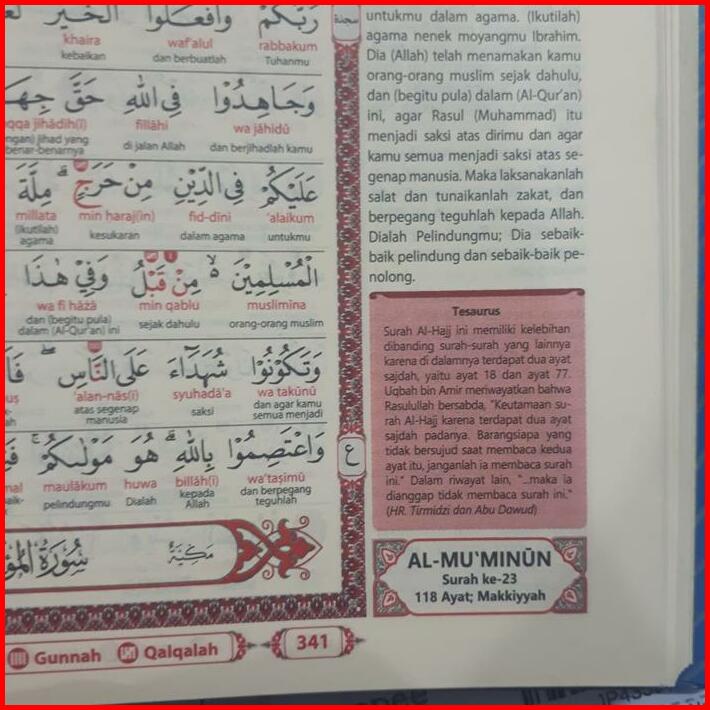 رَبَّكُمْ وَافْعَلُوا الْخَيْرَ
khaira waf'alul rabbakum
kebaikan dan berbuatlah Tuhanmu
وَجَاهِدُوْا فِى اللّٰهِ حَقَّ
qqa jihādih(ī) fillāhi wa jāhidū
ngan) jihad yang
benar-benarnya di jalan Allah dan berjihadlah kamu
عَلَيْكُمْ فِى الدِّيْنِ مِنْ حَرَجٍ مِلَّةَ
millata min haraj(in) fid-dīni 'alaikum
(ikutilah)
agama kesukaran dalam agama untukmu
الْمُسْلِمِيْنَ مِنْ قَبْلُ وَفِيْ هٰذَا
wa fī hāżā min qablu muslimīna
dan (begitu pula)
dalam (Al-Qur'an) ini sejak dahulu orang-orang muslim
وَتَكُوْنُوْا شُهَدَاۤءَ عَلَى النَّاسِ
'alan-nās(i) syuhadā'a wa takūnū
atas segenap
manusia saksi dan agar kamu
semua menjadi
وَاعْتَصِمُوْا بِاللّٰهِ هُوَ مَوْلٰىكُمْ
maulākum huwa billāh(i) wa'taṣimū
pelindungmu Dialah kepada
Allah dan berpegang
teguhlah
مَكِّيَّةٌ سُوْرَةُ
Gunnah Qalqalah 341
سجدة
ع
untukmu dalam agama. (Ikutilah)
agama nenek moyangmu Ibrahim.
Dia (Allah) telah menamakan kamu
orang-orang muslim sejak dahulu,
dan (begitu pula) dalam (Al-Qur'an)
ini, agar Rasul (Muhammad) itu
menjadi saksi atas dirimu dan agar
kamu semua menjadi saksi atas se-
genap manusia. Maka laksanakanlah
salat dan tunaikanlah zakat, dan
berpegang teguhlah kepada Allah.
Dialah Pelindungmu; Dia sebaik-
baik pelindung dan sebaik-baik pe-
nolong.
Tesaurus
Surah Al-Hajj ini memiliki kelebihan
dibanding surah-surah yang lainnya
karena di dalamnya terdapat dua ayat
sajdah, yaitu ayat 18 dan ayat 77.
Uqbah bin Amir meriwayatkan bahwa
Rasulullah bersabda, "Keutamaan su-
rah Al-Hajj karena terdapat dua ayat
sajdah padanya. Barangsiapa yang
tidak bersujud saat membaca kedua
ayat itu, janganlah ia membaca surah
ini." Dalam riwayat lain, "...maka ia
dianggap tidak membaca surah ini."
(HR. Tirmidzi dan Abu Dawud)
AL-MU`MINŪN
Surah ke-23
118 Ayat; Makkiyyah